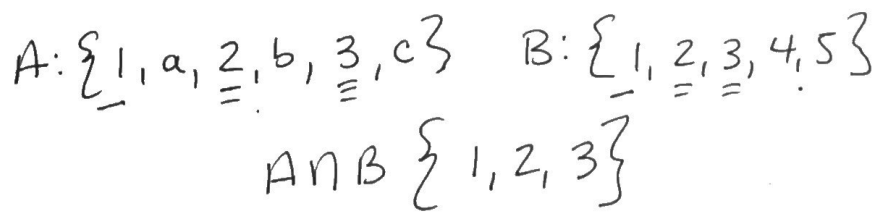 A: {1, a, 2, b, 3, c} B: {1, 2, 3, 4, 5}
A∩B {1, 2, 3}